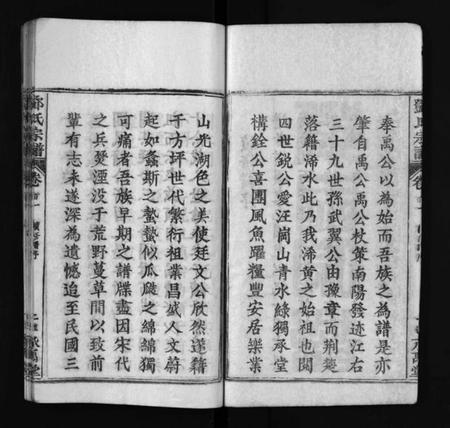 奉禹公以為始而吾族之為譜是亦
肇自禹公禹公杖策南陽發迹江右
三十九世孫武翼公由豫章而荆楚
落籍浠水此乃我浠黄之始祖也閱
四世鋭公愛汪崗山青水綠獨承堂
構銓公喜團風魚躍糧豐安居樂業
山光湖色之美使廷文公欣然遷籍
千方坪世代繁衍祖業昌盛人文蔚
起如螽斯之蟄蟄似瓜瓞之綿綿獨
可痛者吾族早期之譜牒盡因宋代
之兵燹湮没于荒野蔓草間以致前
輩有志未遂深為遺憾迨至民國三
鄧氏宗譜
卷首一